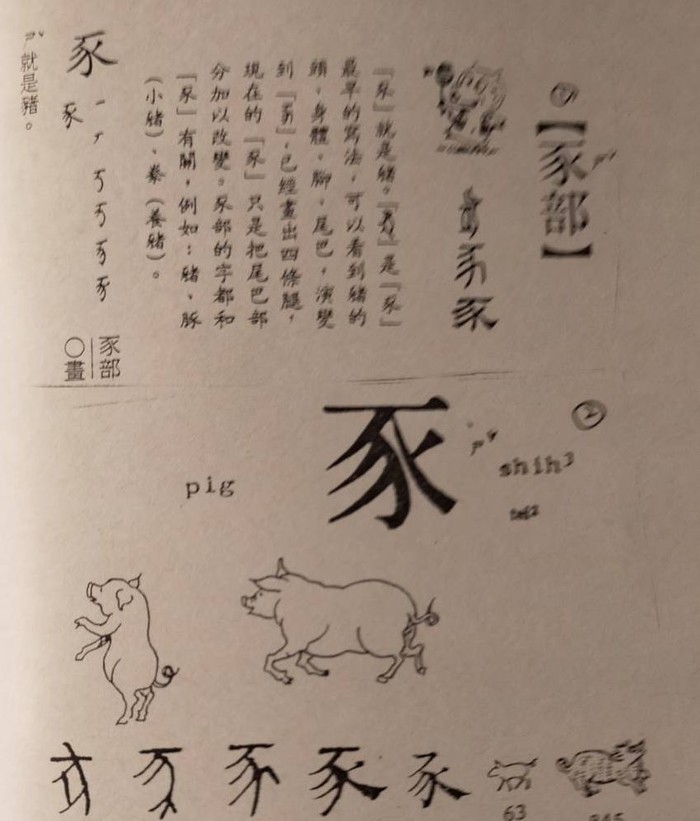 ①【豕部】
豕
「豕」就是豬。「」是「豕」
最早的寫法,可以看到豬的
頭、身體、腳、尾巴,演變
到「」,已經畫出四條腿,
現在的「豕」只是把尾巴部
分加以改變。豕部的字都和
「豕」有關,例如:豬、豚
(小豬)、豢(養豬)。
豕部
〇畫
豕
豕
ㄕˇ
就是豬。
②
shih3
ㄕˇ
豕
pig
豕
豕
63